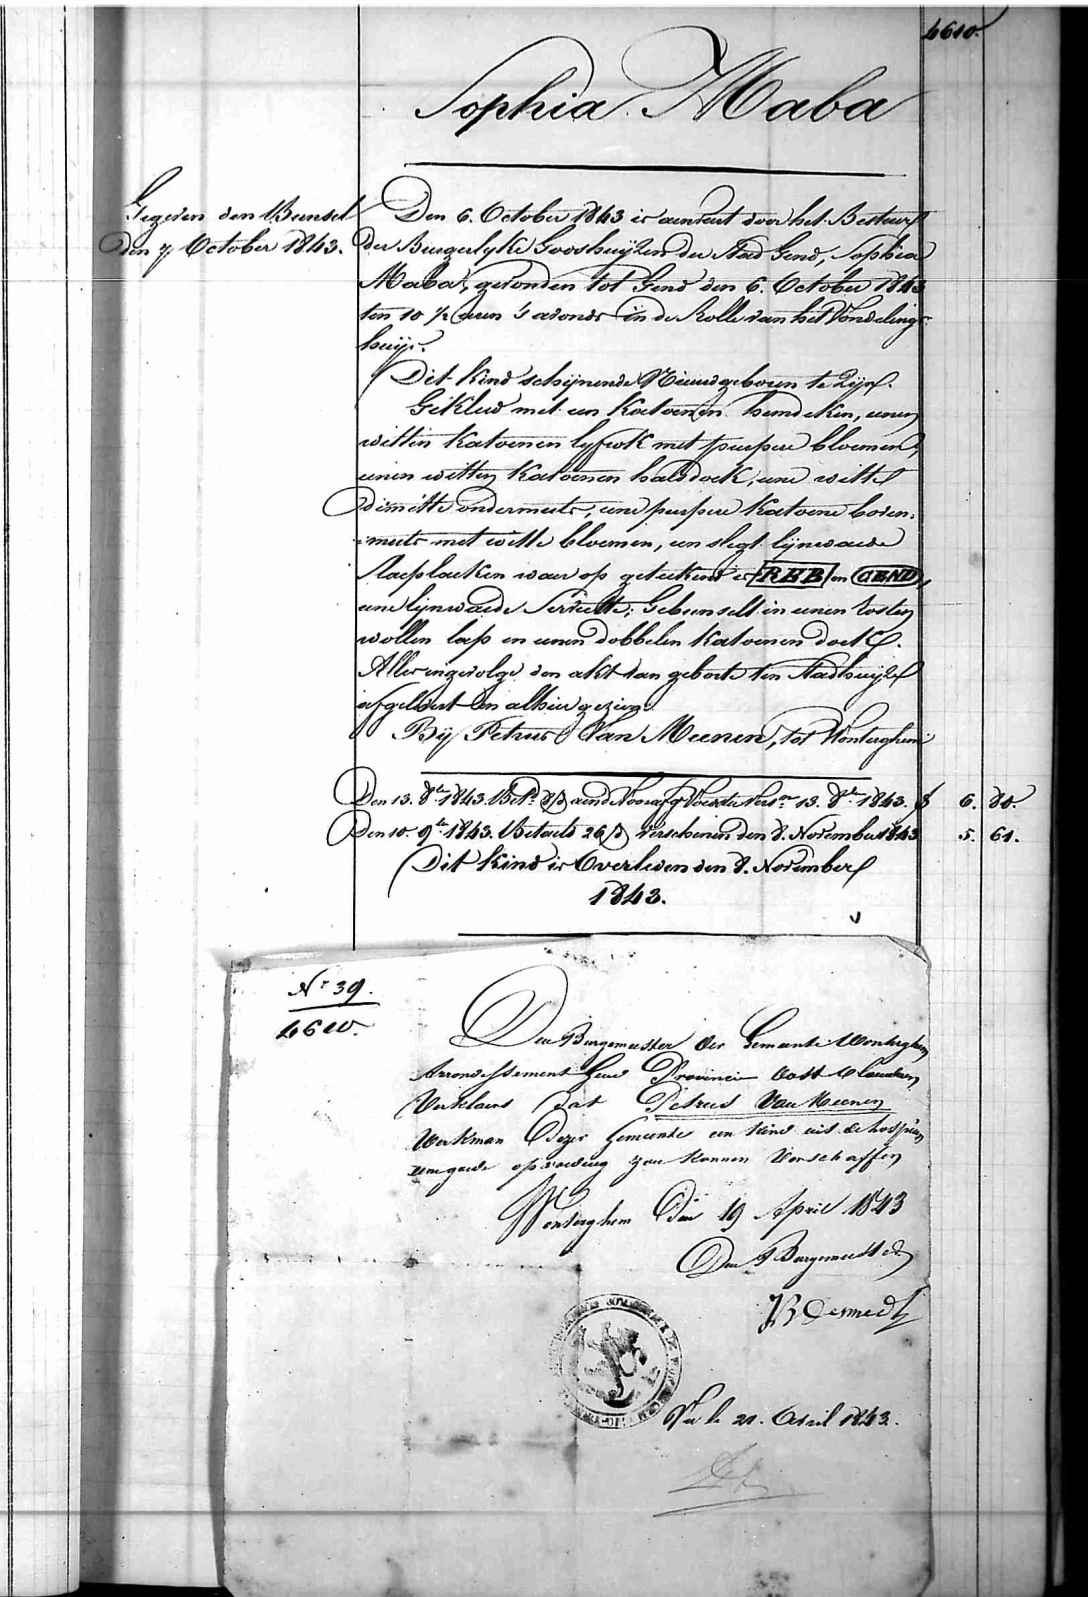 4610.
Sophia Maba
Gegeven den Bunsel
den 7 October 1843.
Den 6. October 1843 is aenveert door het Bestuur
der Burgerlyke Godshuijzen der Stad Gend, Sophia
Maba, gevonden tot Gend den 6. October 1843
ten 10 ½ uren 's avonds in de Rolle van het Vondelings
huijs.
Dit kind schijnende Nieuwgeboren te Zijn.
Gekleed met een katoenen hemdeken, eenen
witten katoenen lyfrok met purpere bloemen,
eenen witten katoenen halsdoek, eene witte
dimitte ondermuts, eene purpere katoene boven-
muts met witte bloemen, een slegt lijnwaede
slaeplaeken waer op geteekend is RHB en GEND,
eene lijnwaede Serviette; Gebunselt in eenen rosten
wollen lap en eenen dobbelen katoenen doek.
Alles ingevolge den akt van geboorte ten Stadhuijze
afgelevert en alhier gezien.
Bij Petrus Van Meenen, tot Wonterghem
Den 13. 8bre 1843. Bet. aend Voedster 13. 8bre 1843. 6. 80.
Den 10. 9bre 1843. Betaeld 26 verschenen den 8. November 1843 5. 61.
Dit kind is Overleden den 8. November
1843.
Nr 39.
4610.
Den Burgemeester der Gemeente Wonterghem
Arrondissement Gend Provincie Oost Vlaenderen
Verklaert dat Petrus Van Meenen
Werkman dezer Gemeente een kind uit de hospicen
eene goede opvoeding zou konnen verschaffen
Wonterghem Den 19 April 1843
Den Burgemeester
Vu le 21. Avril 1843.